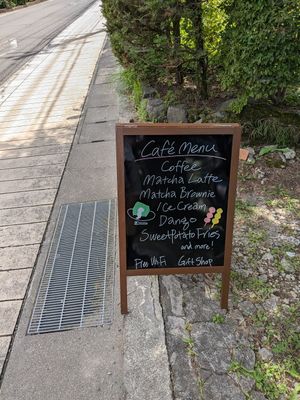 Café Menu
Coffee
Matcha Latte
Matcha Brownie
Ice Cream
Dango
Sweet Potato Fries
and more!
Free Wi-Fi Gift Shop